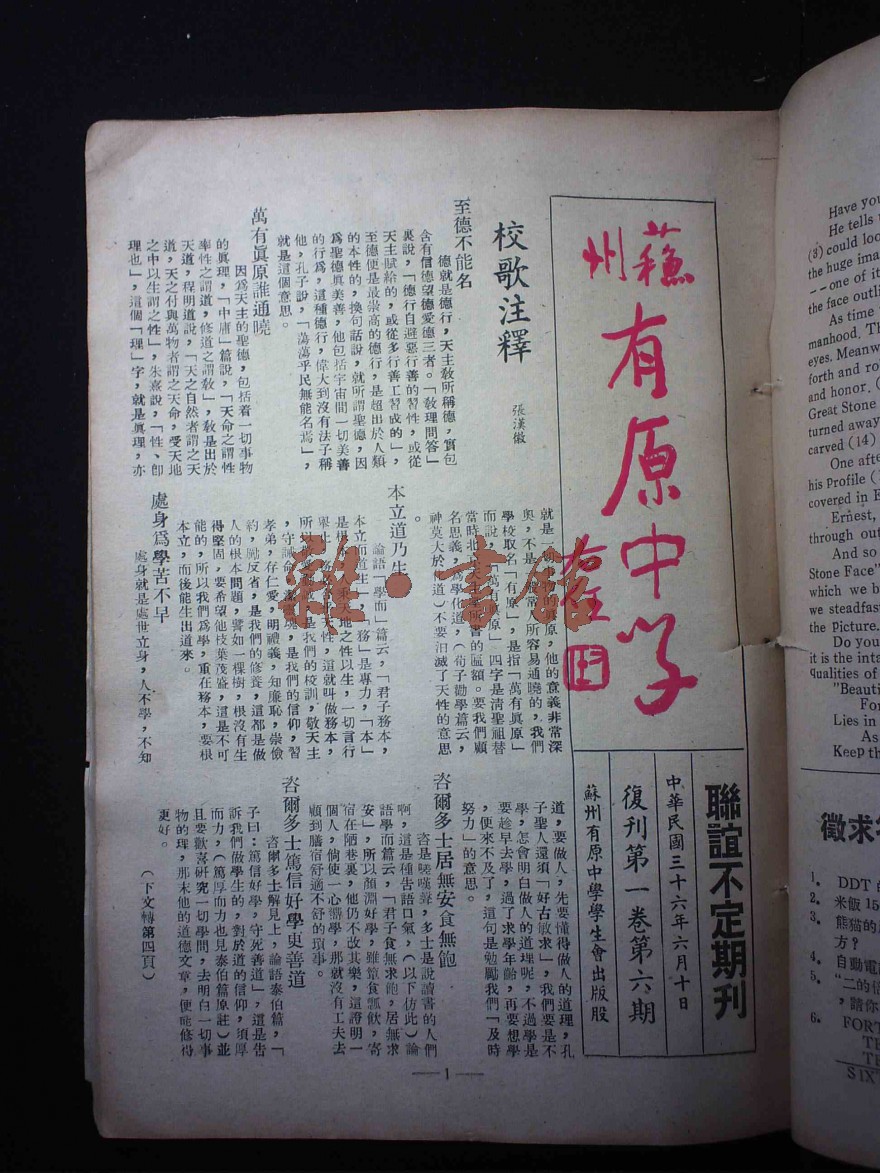 蘇州
有原中学
聯誼不定期刊
中華民國三十六年六月十日
復刊第一卷第六期
蘇州有原中學學生會出版股
校歌注釋
張漢徽
至德不能名
德就是德行,天主教所稱德,實包
含有信德望德愛德三者。「教理問答」
裏說,「德行自避惡行善的習性,或從
天主賦給的,或從多行善工習成的」,
至德便是最崇高的德行,是超出於人類
的本性的,換句話說,就所謂聖德,因
爲聖德真美善,他包括宇宙間一切美善
的行爲,這種德行,偉大到沒有法子稱
他,孔子說,「蕩蕩乎民無能名焉」,
就是這個意思。
萬有眞原誰通曉
因爲天主的聖德,包括着一切事物
的眞理,「中庸」篇說,「天命之謂性
率性之謂道,修道之謂教」,教是出於
天道,程明道說,「天之自然者謂之天
道,天之付與萬物者謂之天命,受天地
之中以生謂之性」,朱熹說,「性、卽
理也」,這個「理」字,就是眞理,亦
就是一切事物的眞原,他的意義非常深
奥,不是尋常人所容易通曉的,我們
學校取名「有原」,是指「萬有眞原」
而說,「萬有眞原」四字是淸聖祖替
當時北
名思義,爲學化道,(荀子勸學篇云,
神莫大於化道)不要汨滅了天性的意思
。
本立道乃生
論語「學而」篇云,「君子務本,
本立而道生」,「務」是專力,「本」
是根本,人秉天地之性以生,一切言行
擧止,
所以
,守誡命,救靈魂,是我們的信仰,習
孝弟,存仁愛,明禮義,知廉恥,崇儉
約,勵反省,是我們的修養,這都是做
人的根本問題,譬如一棵樹,根沒有生
得堅固,要希望他枝葉茂盛,這是不可
能的,所以我們爲學,重在務本,要根
本立,而後能生出道來。
處身爲學苦不早
處身就是處世立身,人不學,不知
道,要做人,先要懂得做人的道理,孔
子聖人還須「好古敏求」,我們要是不
學,怎會明白做人的道理呢,不過學是
要趁早去學,過了求學年齡,再要想學
,便來不及了,這句是勉勵我們「及時
努力」的意思。
咨爾多士居無安食無飽
咨是嗟嘆聲,多士是說讀書的人們
啊,這是種告語口氣,(以下仿此)論
語學而篇云,「君子食無求飽,居無求
安」,所以顏淵好學,雖簞食瓢飲,寄
宿在陋巷裏,他仍不改其樂,這證明一
個人,倘使一心嚮學,那就沒有工夫去
顧到膳宿舒適不舒的瑣事。
咨爾多士篤信好學更善道
咨爾多士解見上,論語泰伯篇,「
子曰:篤信好學,守死善道」,這是告
訴我們做學生的,對於道的信仰,須厚
而力,(篤厚而力也見泰伯篇原註)並
且要歡喜硏究一切學問,去明白一切事
物的理,那末他的道德文章,便能修得
更好。 (下文轉第四頁)
—1—
Have you
He tells
(3) could loo
the huge ima
--one of it
the face outli
As time
manhood. Th
eyes. Meanw
forth and ro
and honor. (
Great Stone
turned away
carved (14)
One afte
his Profile (
covered in E
Ernest,
through out
And so
Stone Face"
which we b
we steadfast
the Picture.
Do you
it is the inta
qualities of
"Beauti
For
Lies in
As
Keep th
徵求
1. DDT 的
2. 米飯 15
3. 熊猫的
方?
4. 自動電
5. "二的信
,請你
6. FORT
TH
TH
SIX
雜·書館